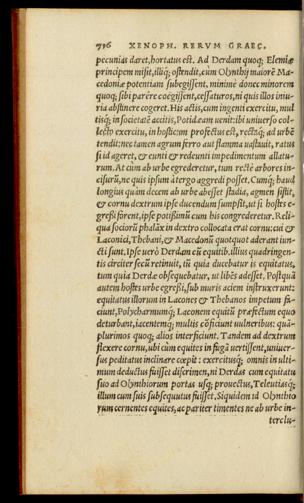 716 XENOPH. RERVM GRAEC.
pecunias daret, hortatus est. Ad Derdam quoq; Elemiæ
principem misit, illiq; ostendit, cùm Olynthij maiorē Ma-
cedoniæ potentiam subegissent, minimè donec minorem
quoq; sibi parêre coëgissent, cessaturos, ni quis illos iniu-
ria abstinere cogeret. His actis, cum ingenti exercitu, mul
tisq; in societatē accitis, Potidæam uenit: ibi uniuerso col-
lecto exercitu, in hosticum profectus est, rectàq; ad urbē
tendit: nec tamen agrum ferro aut flamma uastauit, ratus
si id ageret, & eunti & redeunti impedimentum allatu-
rum. At cùm ab urbe egrederetur, tum rectè arbores in-
cisurū, ne quis ipsum à tergo aggredi posset. Cumq; haud
longius quàm decem ab urbe abesset stadia, agmen sistit,
& cornu dextrum ipse ducendum sumpsit, ut si hostes e-
gressi forent, ipse potissimū cum his congrederetur. Reli-
qua sociorū phalāx in dextro collocata erat cornu: cui &
Laconici, Thebani, & Macedonū quotquot aderant iun-
cti sunt. Ipse uerò Derdam cū equitib. illius quadringen-
tis circiter secū retinuit, tū quia ducebatur is equitatus,
tum quia Derdæ obsequebatur, ut libēs adesset. Postquā
autem hostes urbe egressi, sub muris aciem instruxerunt:
equitatus illorum in Lacones & Thebanos impetum fa-
ciunt, Polycharmumq; Laconem equitū præfectum equo
deturbant, iacentemq; multis cōficiunt uulneribus: quā-
plurimos quoq; alios interficiunt. Tandem ad dextrum
flexere cornu, ubi cùm equites in fugā uertissent, uniuer-
sus peditatus inclinare cœpit: exercitusq; omnis in ulti-
mum deductus fuisset discrimen, ni Derdas cum equitatu
suo ad Olynthiorum portas usq; prouectus, Teleutiasq;
illum cum suis subsequutus fuisset. Siquidem id Olynthio
rum cernentes equites, ac pariter timentes ne ab urbe in-
terclu-